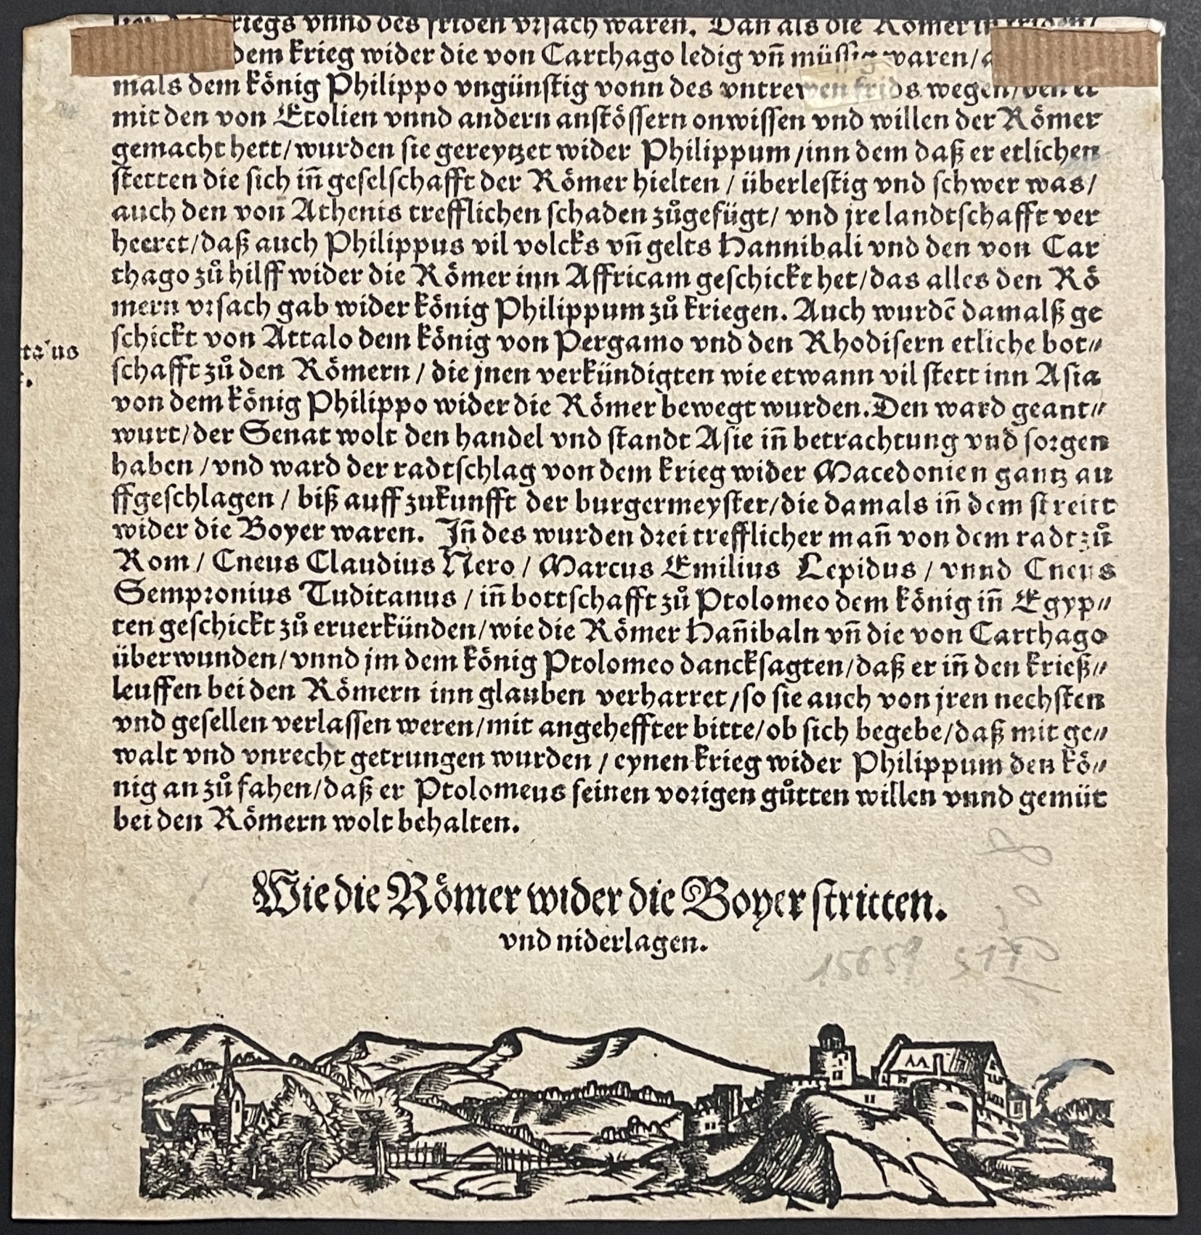 kriegs vnnd des friden vrsach waren. Dan als die Römer in
dem krieg wider die von Carthago ledig vn̄ müssig waren/
mals dem könig Philippo vngünstig vonn des vntrewen frids wegen/den er
mit den von Etolien vnnd andern anstössern onwissen vnd willen der Römer
gemacht hett/wurden sie gereytzet wider Philippum/inn dem daß er etlichen
stetten die sich in̄ geselschafft der Römer hielten / überlestig vnd schwer was/
auch den von Athenis trefflichen schaden zůgefügt/ vnd jre landtschafft ver
heeret/daß auch Philippus vil volcks vn̄ gelts Hannibali vnd den von Car
thago zů hilff wider die Römer inn Affricam geschickt het/das alles den Rö
mern vrsach gab wider könig Philippum zů kriegen. Auch wurdē damalß ge
schickt von Attalo dem könig von Pergamo vnd den Rhodisern etliche bot⸗
schafft zů den Römern / die jnen verkündigten wie etwann vil stett inn Asia
von dem könig Philippo wider die Römer bewegt wurden. Den ward geant⸗
wurt/der Senat wolt den handel vnd standt Asie in̄ betrachtung vnd sorgen
haben /vnd ward der radtschlag von dem krieg wider Macedonien gantz au
ffgeschlagen / biß auff zukunfft der burgermeyster/die damals in̄ dem streitt
wider die Boyer waren. In̄ des wurden drei trefflicher man̄ von dem radt zů
Rom / Cneus Claudius Nero / Marcus Emilius Lepidus / vnnd Cneus
Sempronius Tuditanus / in̄ bottschafft zů Ptolomeo dem könig in̄ Egyp⸗
ten geschickt zů eruerkünden/wie die Römer Han̄ibaln vn̄ die von Carthago
überwunden/vnnd jm dem könig Ptolomeo dancksagten/daß er in̄ den krieß⸗
leuffen bei den Römern inn glauben verharret/so sie auch von jren nechsten
vnd gesellen verlassen weren/mit angeheffter bitte/ob sich begebe/daß mit ge⸗
walt vnd vnrecht getrungen wurden / eynen krieg wider Philippum den kö⸗
nig an zů fahen/daß er Ptolomeus seinen vorigen gůtten willen vnnd gemüt
bei den Römern wolt behalten.
Wie die Römer wider die Boyer stritten.
vnd niderlagen.